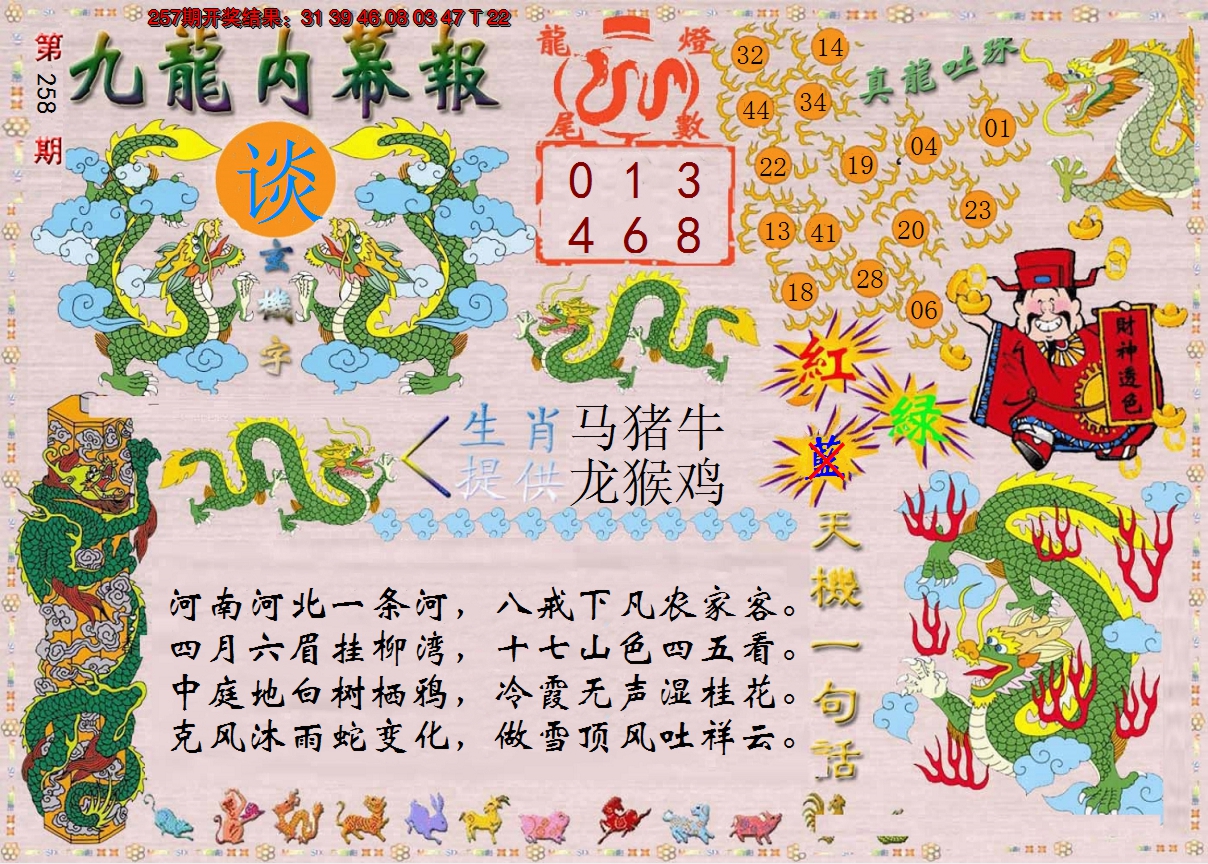 257期开奖结果：31 39 46 08 03 47 T 22
第258期
九龍内幕報
谈
玄機字
龍燈
尾數
0 1 3
4 6 8
真龍吐珠
32
14
44
34
01
04
22
19
23
13
41
20
28
18
06
財神透色
紅
綠
藍
生肖提供
马猪牛
龙猴鸡
天機一句話
河南河北一条河，八戒下凡农家客。
四月六眉挂柳湾，十七山色四五看。
中庭地白树栖鸦，冷霞无声湿桂花。
克风沐雨蛇变化，做雪顶风吐祥云。